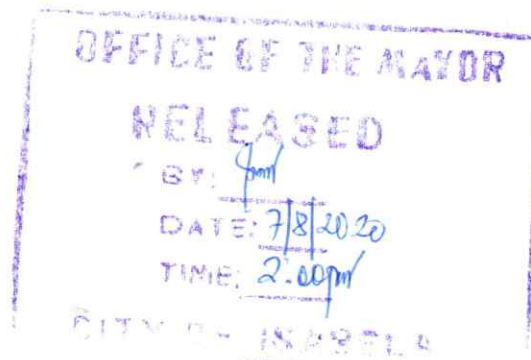 OFFICE OF THE MAYOR
RELEASED
BY:
DATE: 7/8/2020
TIME: 2:00pm
CITY OF ISABELA